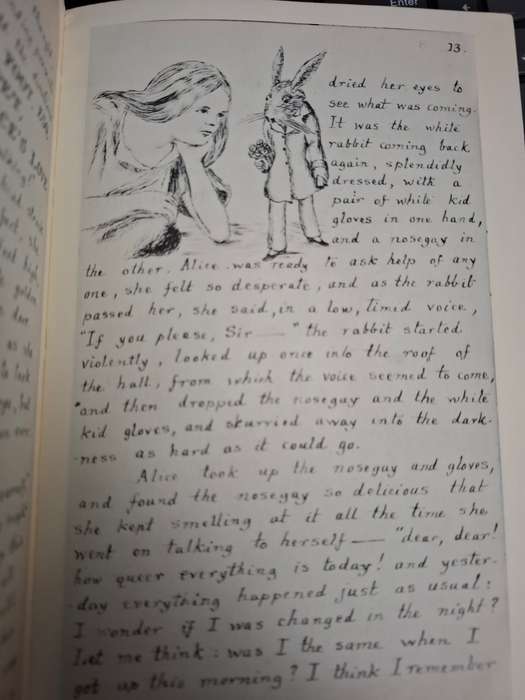 Enter
13.
dried her eyes to
see what was coming.
It was the white
rabbit coming back
again, splendidly
dressed, with a
pair of white kid
gloves in one hand,
and a nosegay in
the other. Alice was ready to ask help of any
one, she felt so desperate, and as the rabbit
passed her, she said, in a low, timid voice,
"If you please, Sir——" the rabbit started
violently, looked up once into the roof of
the hall, from which the voice seemed to come,
and then dropped the nosegay and the white
kid gloves, and skurried away into the dark-
-ness as hard as it could go.
Alice took up the nosegay and gloves,
and found the nosegay so delicious that
she kept smelling at it all the time she
went on talking to herself—— "dear, dear!
how queer everything is today! and yester-
-day everything happened just as usual:
I wonder if I was changed in the night?
Let me think: was I the same when I
got up this morning? I think I remember